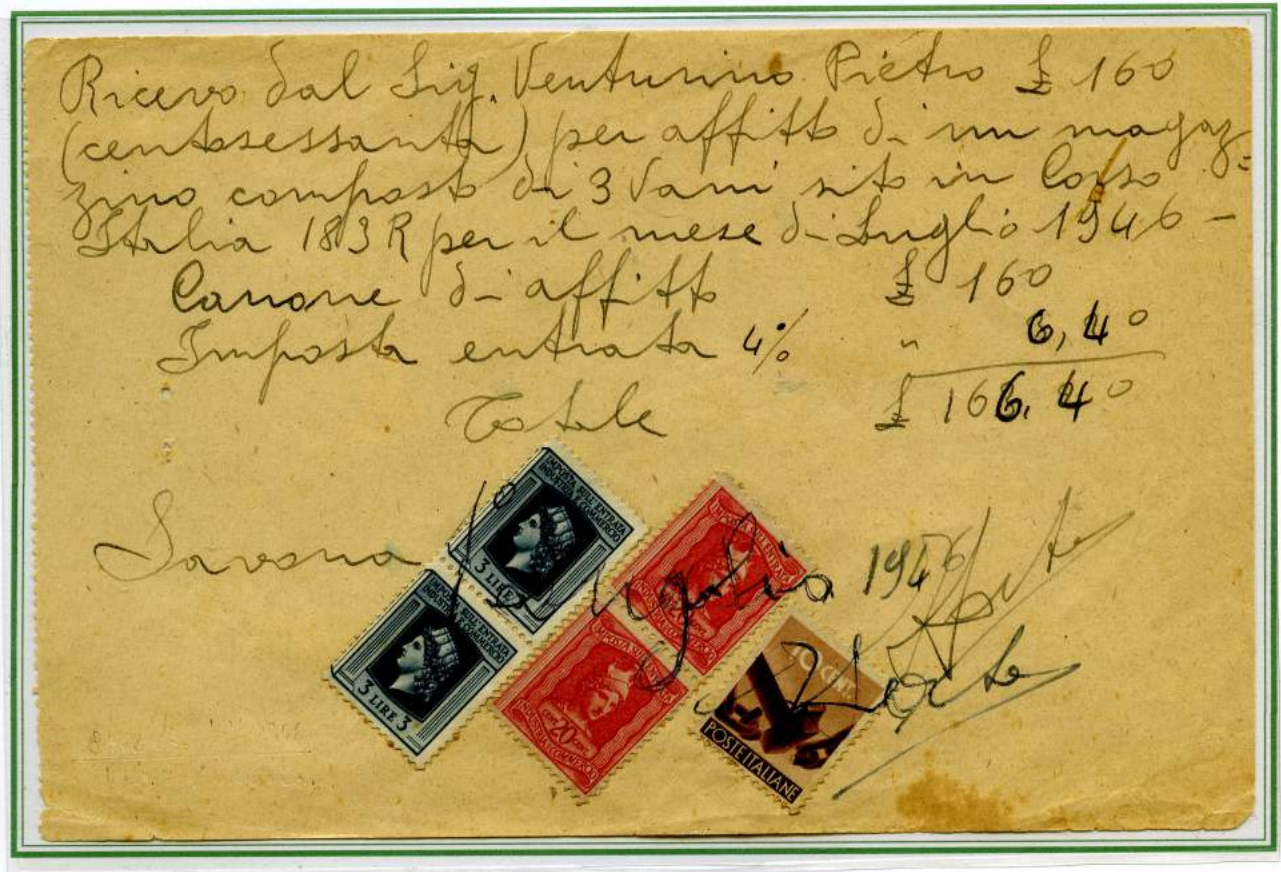 Ricevo dal Sig. Venturino Pietro £ 160
(centosessanta) per affitto di un magaz=
zino composto di 3 Vani sito in Corso
Italia 183 R per il mese di Luglio 1946 -
Canone di affitto £ 160
Imposta entrata 4% " 6,40
Totale £ 166.40
Savona 1° Luglio 1946
IMPOSTA SULL'ENTRATA
INDUSTRIA E COMMERCIO
3 LIRE
IMPOSTA SULL'ENTRATA
INDUSTRIA E COMMERCIO
3 LIRE 3
IMPOSTA SULL'ENTRATA
INDUSTRIA E COMMERCIO
IMPOSTA SULL'ENTRATA
CENT. 20 CENT.
INDUSTRIA E COMMERCIO
40 CENT.
POSTE ITALIANE